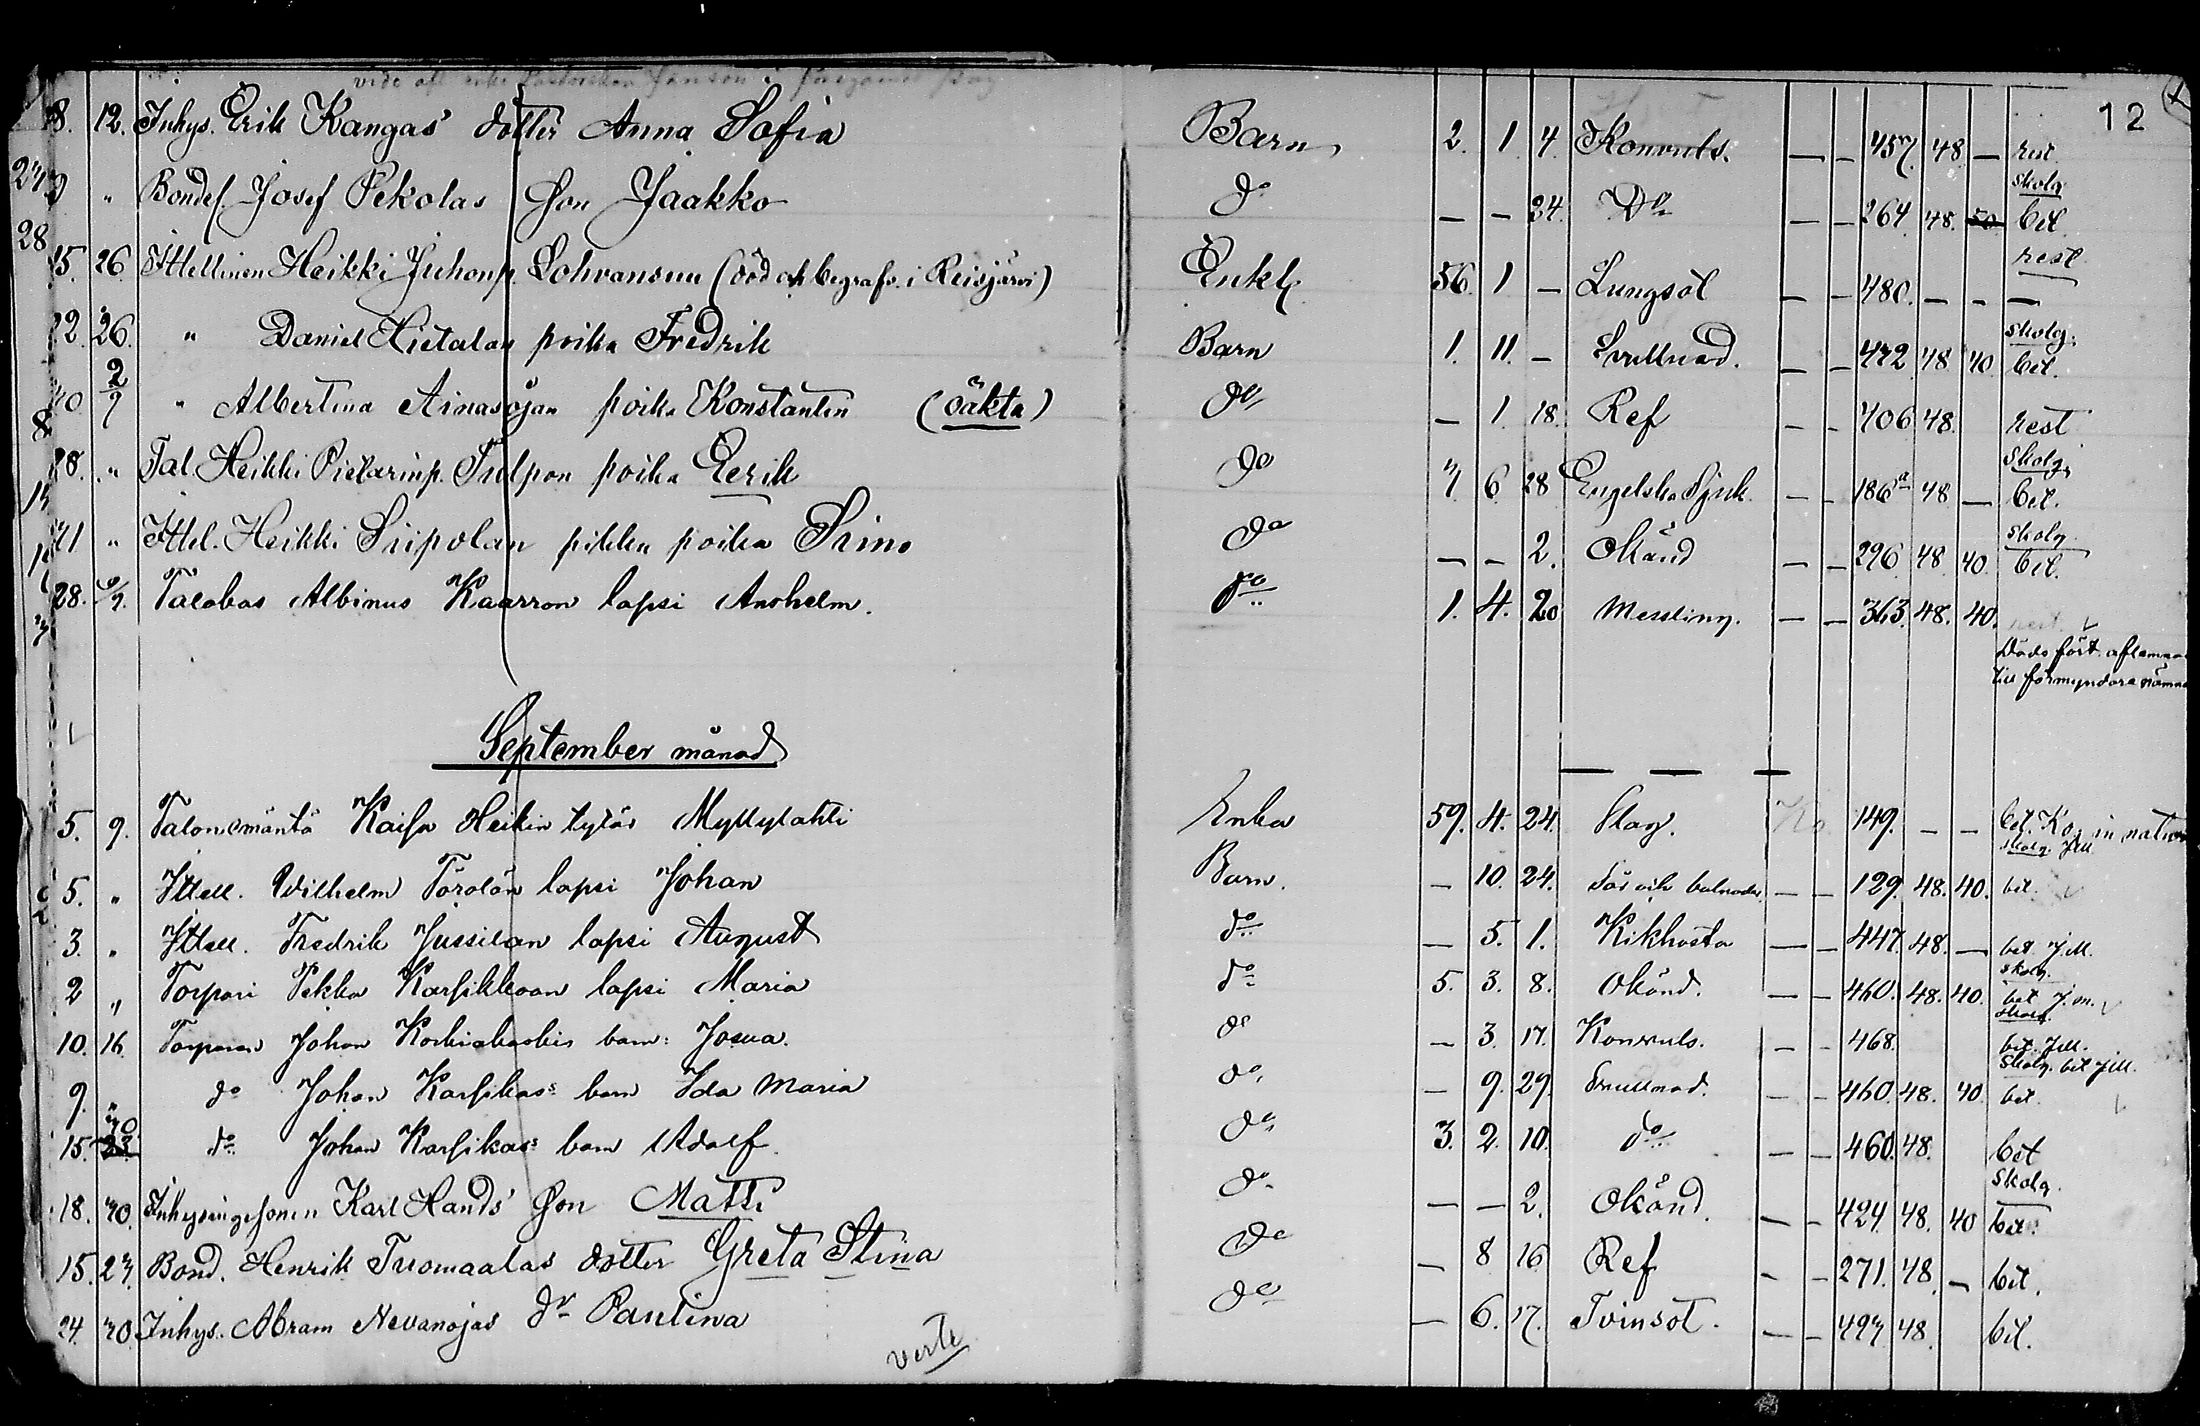 12
8. 12. Inhys. Erik Kangas' dotter Anna Sofia Barn 2. 1. 4. Konvuls. — — 457. 48 — rest.
" Bondes. Josef Pekolas Son Jaakko do — — 24. Do — — 264. 48. 50 Skolg. bet.
15. 26. Ittellinen Heikki Juhonp. Lohvansuu (död och begrafv. i Reisjärvi) Enkl. 56. 1 — Lungsot — — 480. — — rest —
22. 26. " Daniel Hietalan poika Fredrik Barn 1. 11. — Svullnad. — — 472 48 40 Skolg. bet.
" Albertina Ainasojan poika Konstantin (oäkta) do — 1. 18. Ref — — 406 48. rest
28. " Tal. Heikki Pietarinp. Tulpon poika Eerik do 7 6 28 Engelska Sjuk. — — 186 a 48 — Skolg. bet.
" Ittel. Heikki Siipolan pikku poika Simo do — — 2. Okänd — — 296 48 40. Skolg. bet.
28. Talokas Albinus Kaarron lapsi Anshelm. do 1. 4. 20 Messling. — — 363. 48. 40. rest.
Döds
till förmyndare
September månad
5. 9. Talonemäntä Kaisa Heikin tytär Myllylahti Enka 59. 4. 24. Slag. Ko 149. — — bet. Ko in natura
5. " Ittell. Wilhelm Törölän lapsi Johan Barn. — 10. 24. Sår och bulnader. — — 129. 48. 40. Skolg. JM bet.
3. " Ittell. Fredrik Jussilan lapsi August do — 5. 1. Kikhosta — — 447. 48. — bet. J.M.
2 " Torpari Pekka Karsikkaan lapsi Maria do 5. 3. 8. Okänd. — — 460. 48. 40. Skolg. bet J.M.
10. 16. Torparen Johan barn: Josua. do — 3. 17. Konvuls. — — 468. Skolg. bet. J.M.
9. " do Johan Karsikas: barn Ida Maria do — 9. 29. Svullnad. — — 460. 48. 40. Skolg. bet J.M. bet.
15. 23. do Johan Karsikas: barn Adolf. do 3. 2. 10. do — — 460. 48. bet
18. 30. Inhysingesonen Karl Hands' Son Matti do — — 2. Okänd. — — 424. 48. 40 Skolg. bet.
15. 23. Bond. Henrik Tuomaalas dotter Greta Stina do — 8 16 Ref — — 271. 48. — bet.
24. 30. Inhys. Abram Nevanojas dr Paulina do — 6. 17. Tvinsot. — — 497 48. bet.
verte